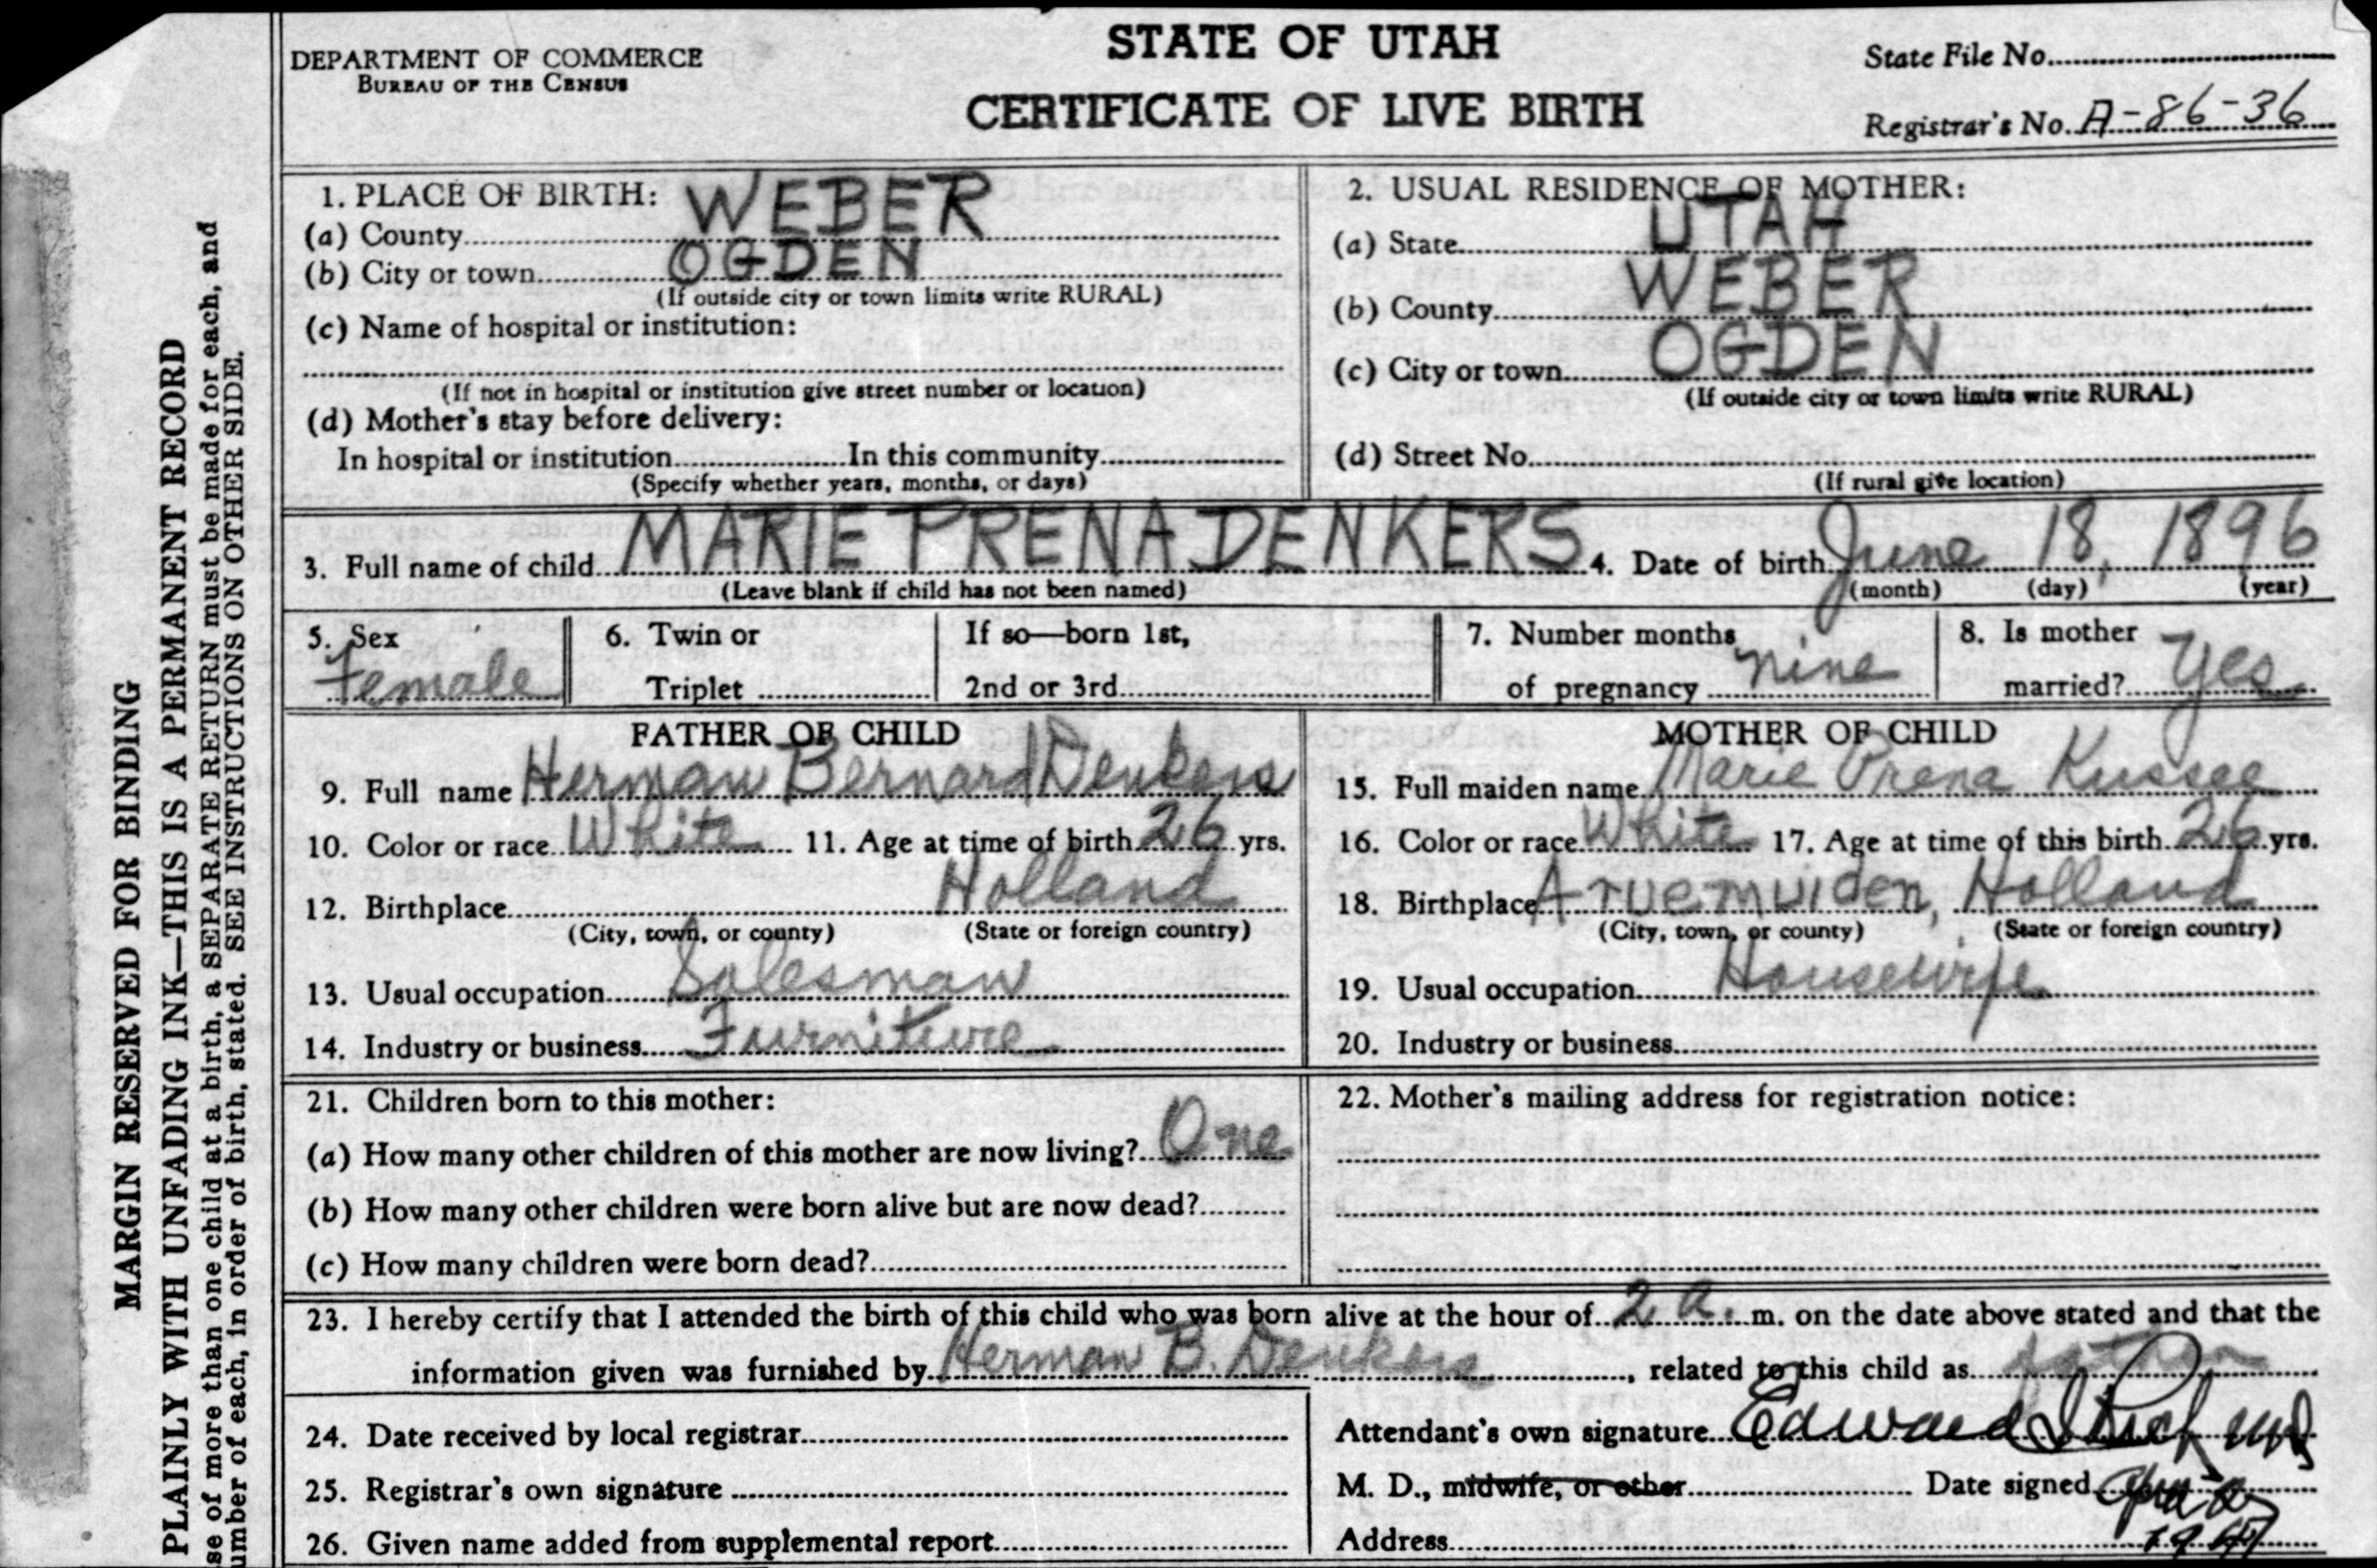 DEPARTMENT OF COMMERCE
BUREAU OF THE CENSUS
STATE OF UTAH
CERTIFICATE OF LIVE BIRTH
State File No.
Registrar's No. A-86-36
MARGIN RESERVED FOR BINDING
PLAINLY WITH UNFADING INK—THIS IS A PERMANENT RECORD
se of more than one child at a birth, a SEPARATE RETURN must be made for each, and
umber of each, in order of birth, stated. SEE INSTRUCTIONS ON OTHER SIDE.
1. PLACE OF BIRTH:
(a) County WEBER
(b) City or town OGDEN
(If outside city or town limits write RURAL)
(c) Name of hospital or institution:
(If not in hospital or institution give street number or location)
(d) Mother's stay before delivery:
In hospital or institution In this community
(Specify whether years, months, or days)
2. USUAL RESIDENCE OF MOTHER:
(a) State UTAH
(b) County WEBER
(c) City or town OGDEN
(If outside city or town limits write RURAL)
(d) Street No.
(If rural give location)
3. Full name of child MARIE PRENA DENKERS 4. Date of birth June 18, 1896
(Leave blank if child has not been named) (month) (day) (year)
5. Sex
Female
6. Twin or
Triplet
If so—born 1st,
2nd or 3rd
7. Number months
of pregnancy nine
8. Is mother
married? yes
FATHER OF CHILD
9. Full name Herman Bernard Denkers
10. Color or race White 11. Age at time of birth 26 yrs.
12. Birthplace Holland
(City, town, or county) (State or foreign country)
13. Usual occupation Salesman
14. Industry or business Furniture
MOTHER OF CHILD
15. Full maiden name Marie Prena Kussee
16. Color or race White 17. Age at time of this birth 26 yrs.
18. Birthplace Aruemuiden, Holland
(City, town, or county) (State or foreign country)
19. Usual occupation Housewife
20. Industry or business
21. Children born to this mother:
(a) How many other children of this mother are now living? One
(b) How many other children were born alive but are now dead?
(c) How many children were born dead?
22. Mother's mailing address for registration notice:
23. I hereby certify that I attended the birth of this child who was born alive at the hour of 2 a. m. on the date above stated and that the
information given was furnished by Herman B. Denkers, related to this child as father
24. Date received by local registrar
25. Registrar's own signature
26. Given name added from supplemental report
Attendant's own signature Edward
M. D., midwife, or other Date signed
Address